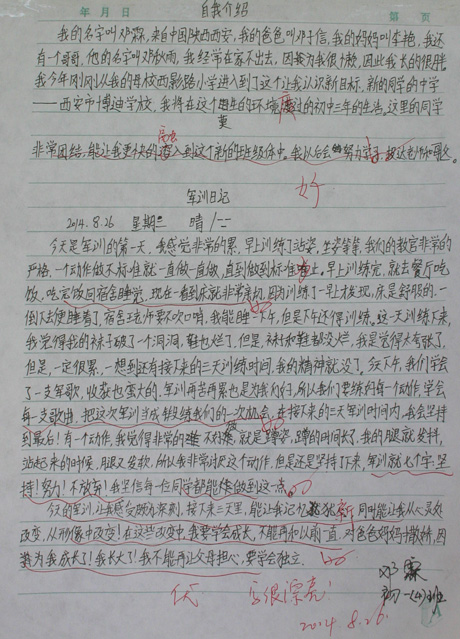 自我介绍
年 月 日 第 页
我的名字叫邓霖,来自中国陕西西安,我的爸爸叫邓于信,我的妈妈叫李艳,我还
有一个哥哥,他的名字叫邓秋雨,我经常在家不出去,因为我很懒,因此我长的很胖
我今年刚刚从我的母校西影路小学进入到了这个让我认识新目标,新的同学的中学
——西安市博迪学校,我将在这个陌生的环境度过的初中三年的生活,这里的同学
非常团结,能让我更快的融入到这个新的班级体中。我以后会努力学
好
军训日记
2014.8.26 星期二 晴
今天是军训的第一天,我感觉非常的累,早上训练了站姿,坐姿等等,我们的教官非常的
严格,一个动作做不标准就一直做一直做,直到做到标准为止,早上训练完,就去餐厅吃
饭,吃完饭回宿舍睡觉,现在一看到床就非常激动,因为训练了一早才发现,床是舒服的.一
倒下去便睡着了,宿舍王老师要不吹口哨,我能睡一下午,但是下午还得训练。这一天训练下来,
我觉得我的袜子破了一个洞洞,鞋也烂了,但是,袜和鞋都没烂,我是觉得太夸张了,
但是,一定很累,一想到还有接下来的三天训练时间,我的精神就没了。今天下午,我们学会
了一支军歌,收获也蛮大的.军训再苦再累也是为我们好,所以我们要练好每一个动作,学会
每一支歌曲,把这次军训当成锻练我们的一次机会,在接下来的三天军训时间内,我会坚持
到最后!有一动作,我觉得非常的难 就是蹲姿,蹲的时间长了,我的腿就发抖,
站起来的时候,腿又发软,所以我非常讨厌这个动作,但是还是坚持了下来,军训就七个字:坚
持!努力!不放弃!我坚信每一位同学都能做到这一点。
今天的军训,让我感受既有深刻,接下来三天里,能让我记忆犹新,同时能让我从人品处
改变,从形像中改变!在这些改变中,我要学会成长,不能再和以前一直对爸爸妈妈撒娇,因
为我成长了!我长大了!我不能再让父母担心,要学会独立.
优 字很漂亮!
2014.8.26.
邓霖
初一(4)班